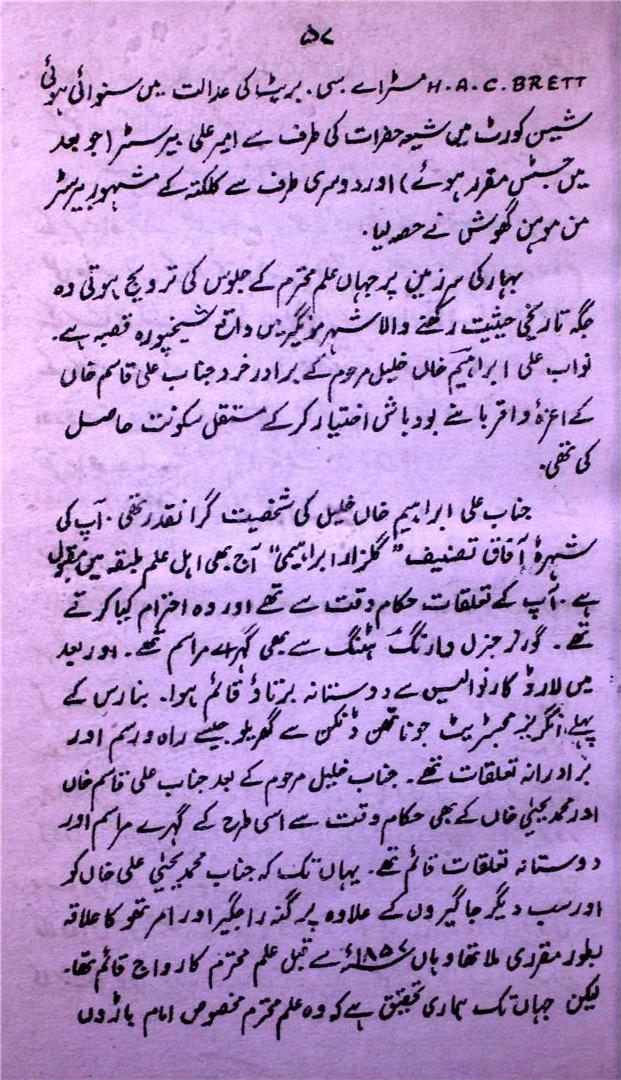 ۵۷
H.A.C. BRETT مسٹر اے سی. بریٹ کی عدالت میں سنوائی ہوئی
شیسن کورٹ میں شیعہ حضرات کی طرف سے امیر علی بیرسٹر (جو بعد
میں جسٹس مقرر ہوئے) اور دوسری طرف سے کلکتہ کے مشہور بیرسٹر
من موہن گھوش نے حصہ لیا.
بہار کی سرزمین پر جہاں علم محترم کے جلوس کی ترویج ہوتی وہ
جگہ تاریخی حیثیت رکھنے والا شہر مونگیر میں واقع شیخپورہ قصبہ ہے.
نواب علی ابراہیم خاں خلیل مرحوم کے برادر خرد جناب علی قاسم خاں
کے اعزہ و اقربا نے بود باش اختیار کر کے مستقل سکونت حاصل
کی تھی.
جناب علی ابراہیم خاں خلیل کی شخصیت گرانقدر تھی. آپ کی
شہرۂ آفاق تصنیف "گلزار ابراہیمی" آج بھی اہل علم طبقہ میں مقبول
ہے. آپ کے تعلقات حکام وقت سے تھے اور وہ احترام کیا کرتے
تھے. گورنر جنرل وارنگ ہٹنگ سے بھی گہرے مراسم تھے. اور بعد
میں لارڈ کارنوالیس سے دوستانہ برتاؤ قائم ہوا. بنارس کے
پہلے انگریز مجسٹریٹ جوناتھن ڈنکن سے گھریلو جیسے راہ و رسم اور
برادرانہ تعلقات تھے. جناب خلیل مرحوم کے بعد جناب علی قاسم خاں
اور محمد یحییٰ خاں کے بھی حکام وقت سے اسی طرح کے گہرے مراسم اور
دوستانہ تعلقات قائم تھے. یہاں تک کہ جناب محمد یحییٰ علی خاں کو
اور سب دیگر جاگیروں کے علاوہ پرگنہ راجگیر اور امرتھو کا علاقہ
بطور مقرری ملا تھا وہاں ۱۸۵۷ء سے قبل علم محترم کا رواج قائم تھا.
لیکن جہاں تک ہماری تحقیق ہے کہ وہ علم محترم مخصوص امام باڑوں